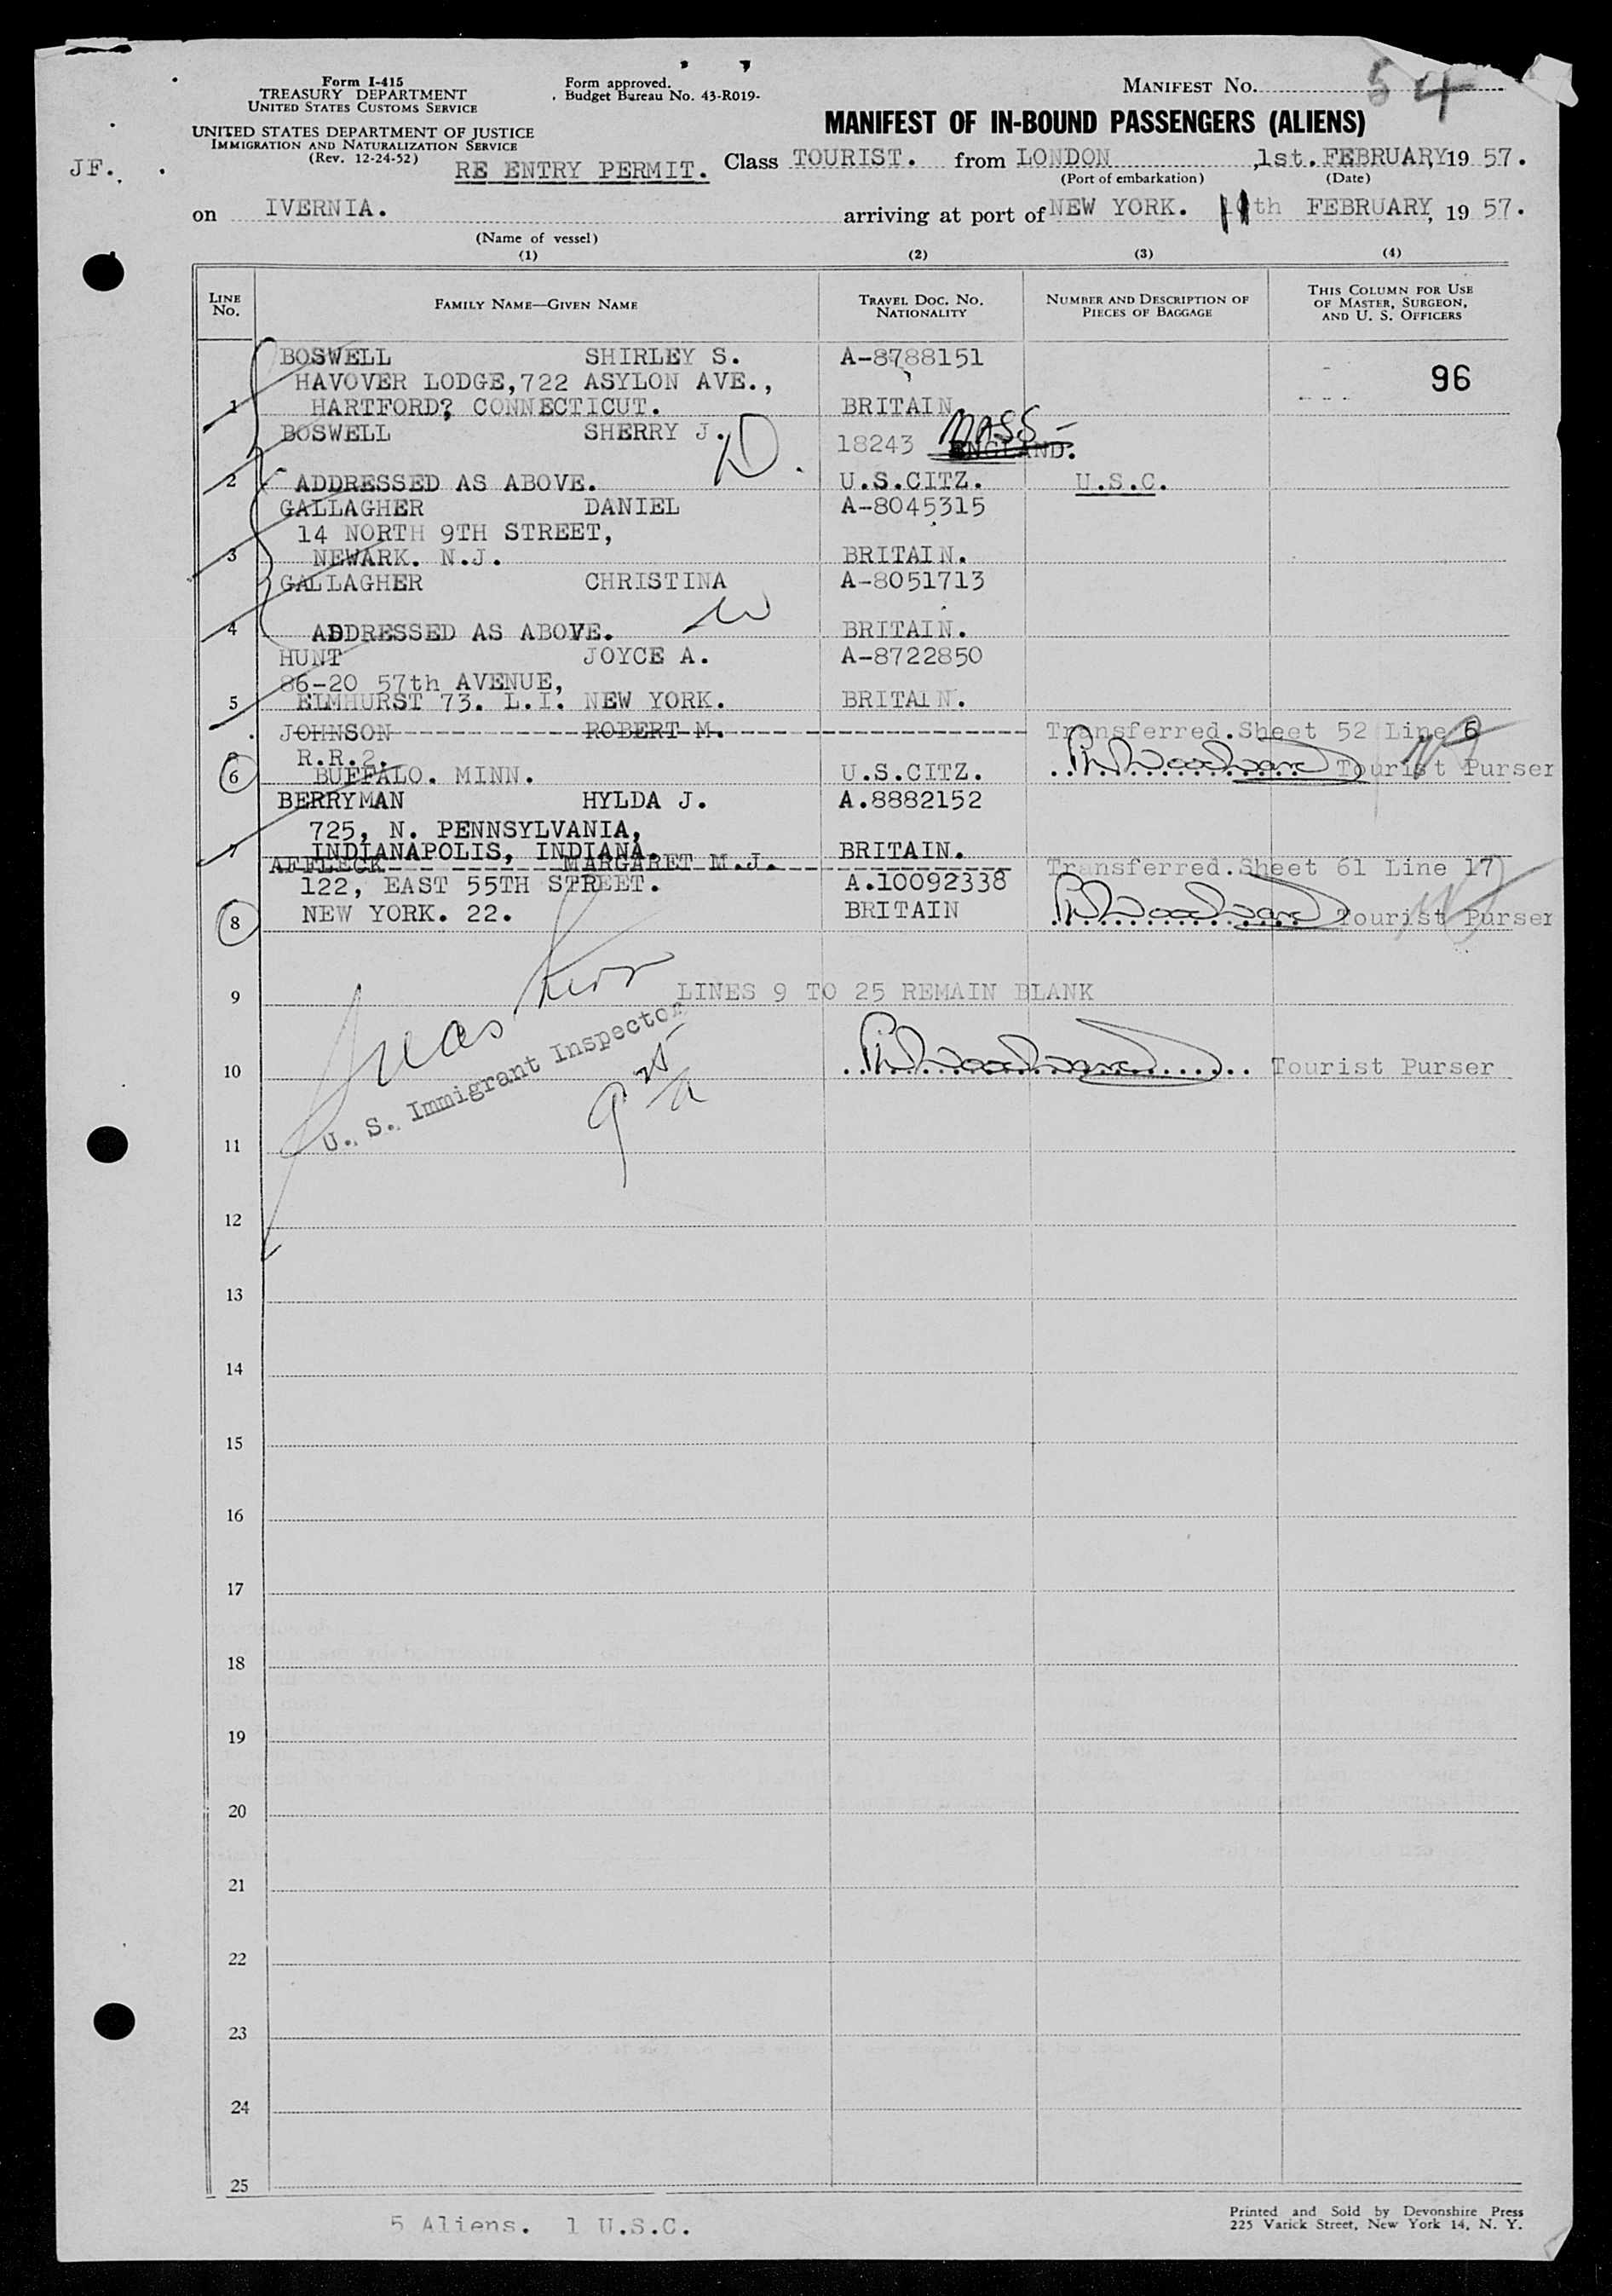 Form I-415
TREASURY DEPARTMENT
UNITED STATES CUSTOMS SERVICE
UNITED STATES DEPARTMENT OF JUSTICE
IMMIGRATION AND NATURALIZATION SERVICE
(Rev. 12-24-52)
Form approved.
Budget Bureau No. 43-R019-
MANIFEST NO. 54
MANIFEST OF IN-BOUND PASSENGERS (ALIENS)
JF.
RE ENTRY PERMIT. Class TOURIST. from LONDON ,1st. FEBRUARY, 19 57.
(Port of embarkation) (Date)
on IVERNIA. arriving at port of NEW YORK. 11th FEBRUARY, 19 57.
(Name of vessel)
(1) (2) (3) (4)
LINE No. FAMILY NAME—GIVEN NAME TRAVEL DOC. NO. NATIONALITY NUMBER AND DESCRIPTION OF PIECES OF BAGGAGE THIS COLUMN FOR USE OF MASTER, SURGEON, AND U. S. OFFICERS
BOSWELL SHIRLEY S. A-8788151
HAVOVER LODGE,722 ASYLON AVE., 96
1 HARTFORD? CONNECTICUT. BRITAIN
BOSWELL SHERRY J. D. 18243 MASS - ENGLAND.
2 ADDRESSED AS ABOVE. U.S.CITZ. U.S.C.
GALLAGHER DANIEL A-8045315
14 NORTH 9TH STREET,
3 NEWARK. N.J. BRITAIN.
GALLAGHER CHRISTINA A-8051713
4 ADDRESSED AS ABOVE. BRITAIN.
HUNT JOYCE A. A-8722850
86-20 57th AVENUE,
5 ELMHURST 73. L.I. NEW YORK. BRITAIN.
JOHNSON ROBERT M. Transferred.Sheet 52 Line 6
R.R.2.
6 BUFFALO. MINN. U.S.CITZ. Tourist Purser
BERRYMAN HYLDA J. A.8882152
725, N. PENNSYLVANIA,
7 INDIANAPOLIS, INDIANA. BRITAIN.
AFFLECK MARGARET M.J. Transferred.Sheet 61 Line 17
122, EAST 55TH STREET. A.10092338
8 NEW YORK. 22. BRITAIN Tourist Purser
9 LINES 9 TO 25 REMAIN BLANK
U. S. Immigrant Inspector
10 Tourist Purser
11
12
13
14
15
16
17
18
19
20
21
22
23
24
25
5 Aliens. 1 U.S.C.
Printed and Sold by Devonshire Press
225 Varick Street, New York 14, N. Y.